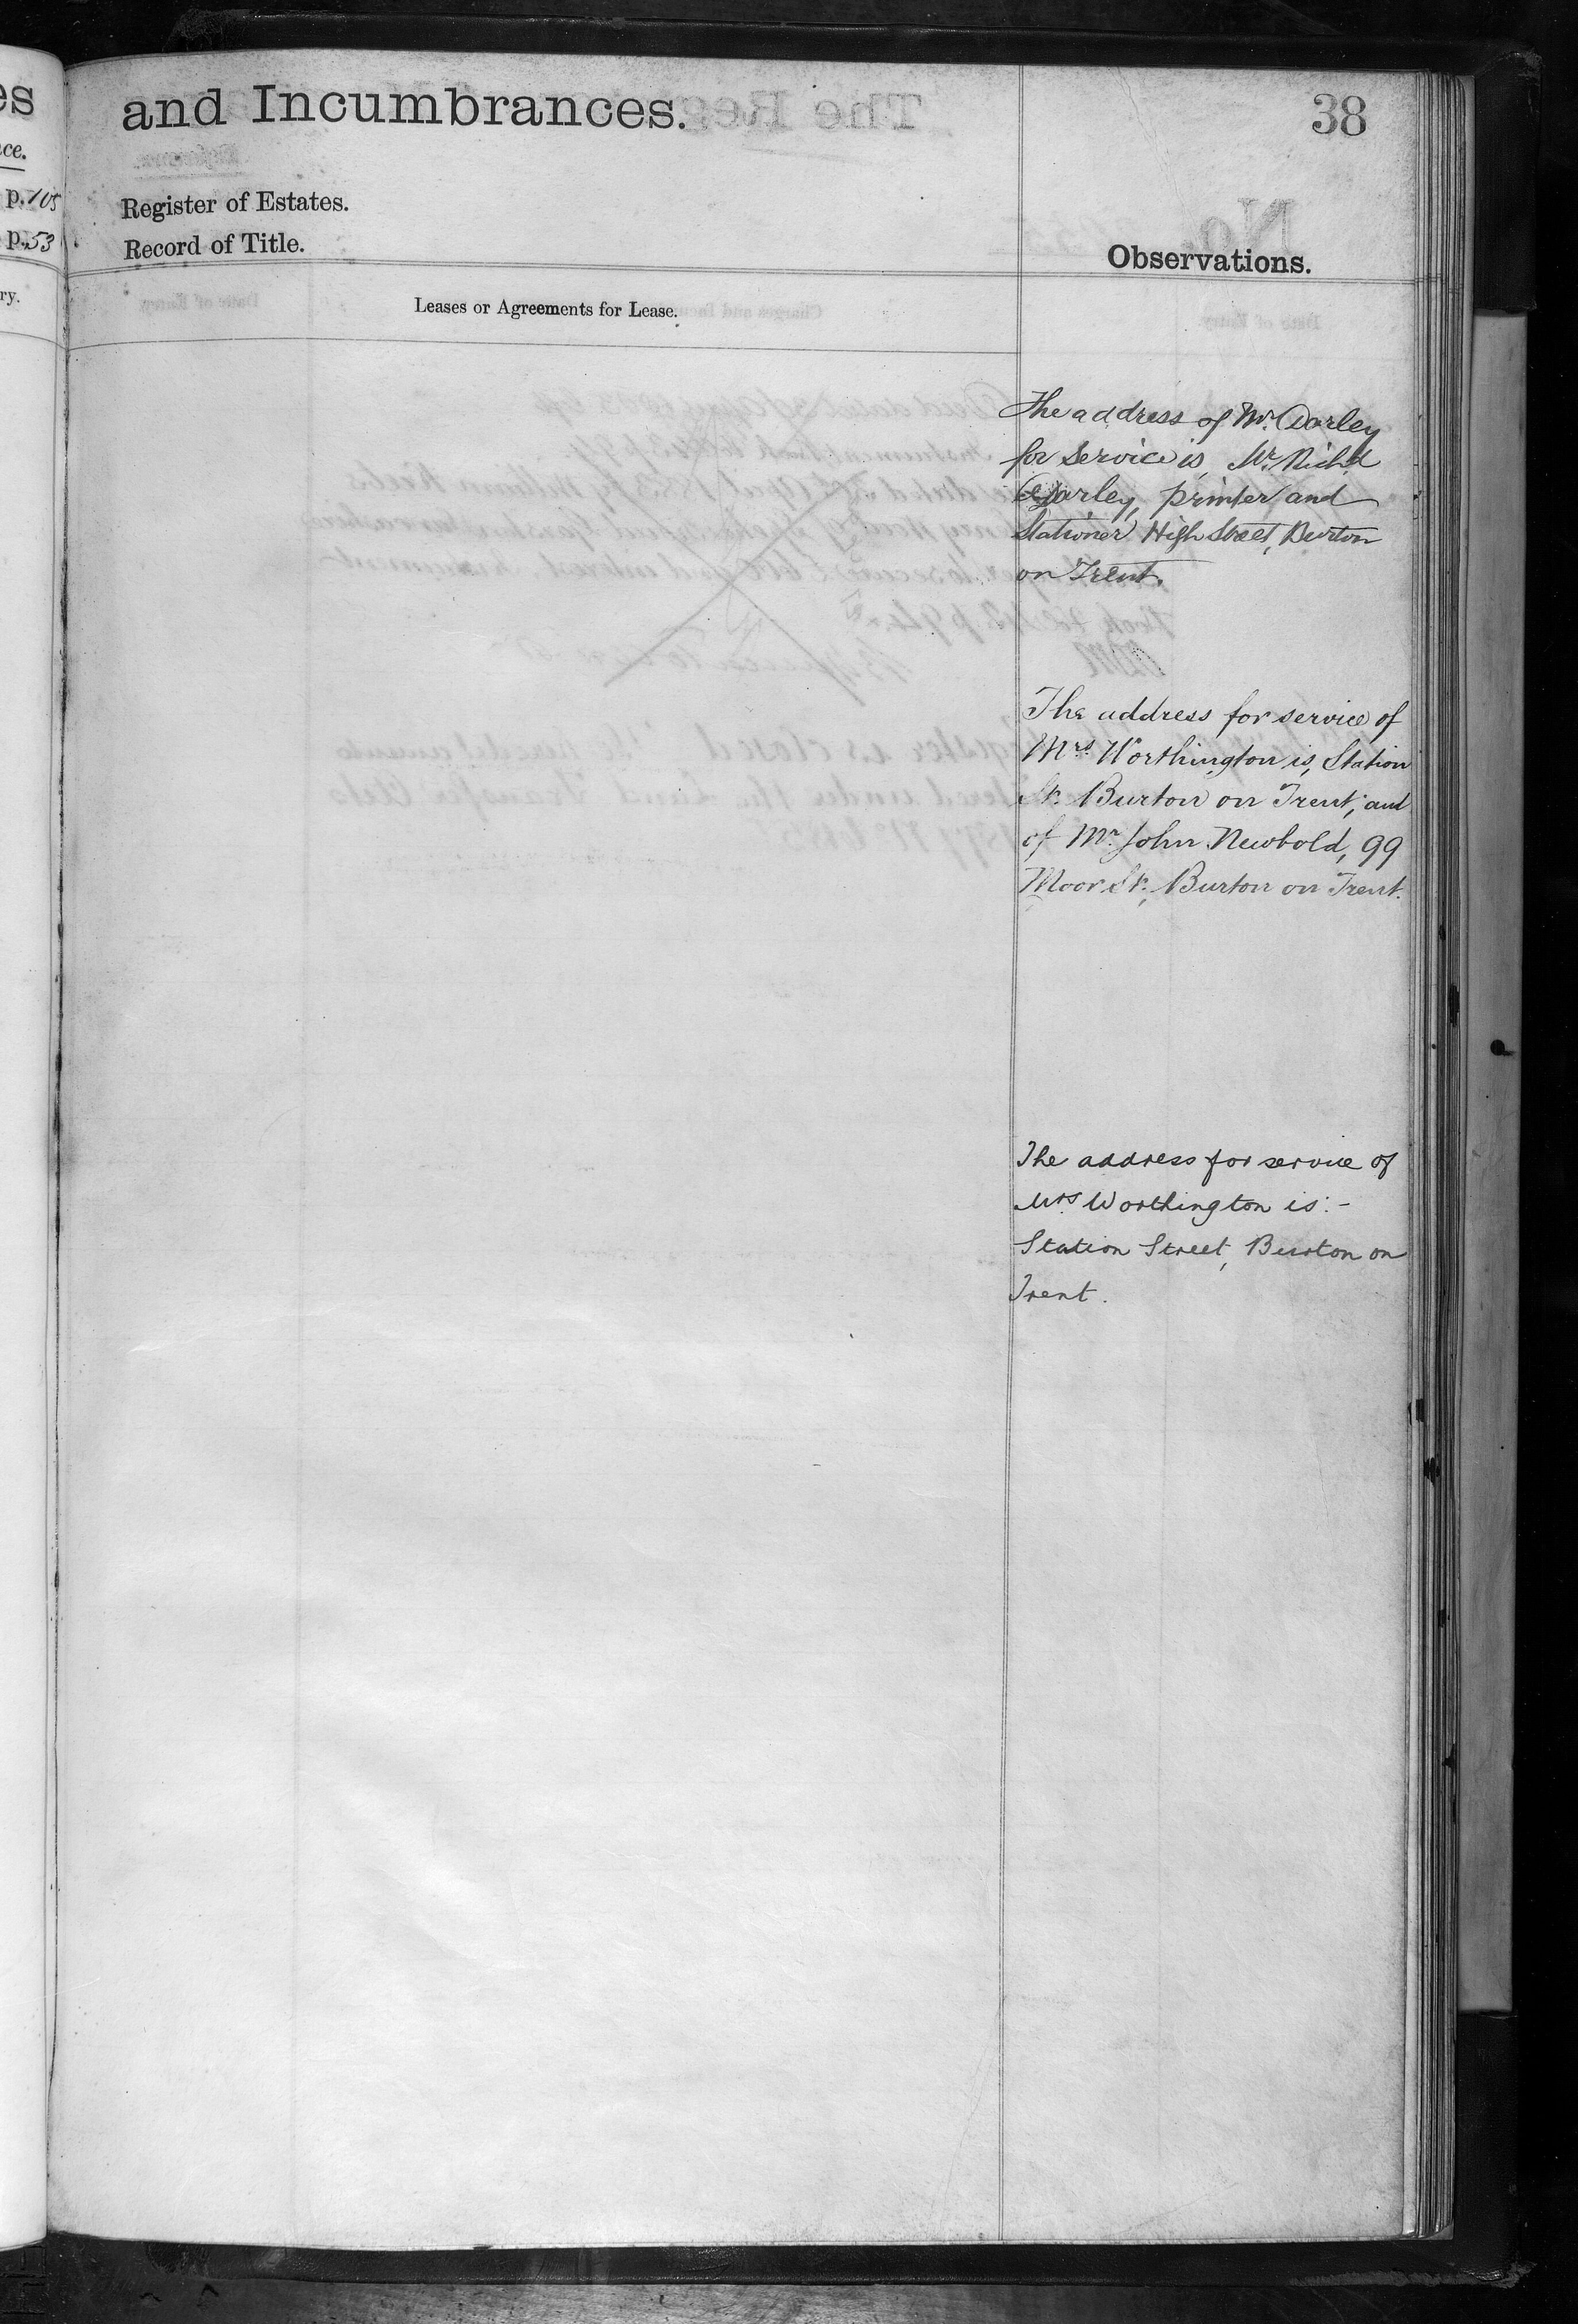 and Incumbrances.
38
Register of Estates.
Record of Title.
p. 105
p. 53
Observations.
Leases or Agreements for Lease.
The address of Mr. Darley
for service is, Mr. Richd
Darley, printer and
Stationer High Street, Burton
on Trent.
The address for service of
Mrs Worthington is, Station
St. Burton on Trent; and
of Mr. John Newbold, 99
Moor St., Burton on Trent.
The address for service of
Mrs Worthington is:-
Station Street, Burton on
Trent.